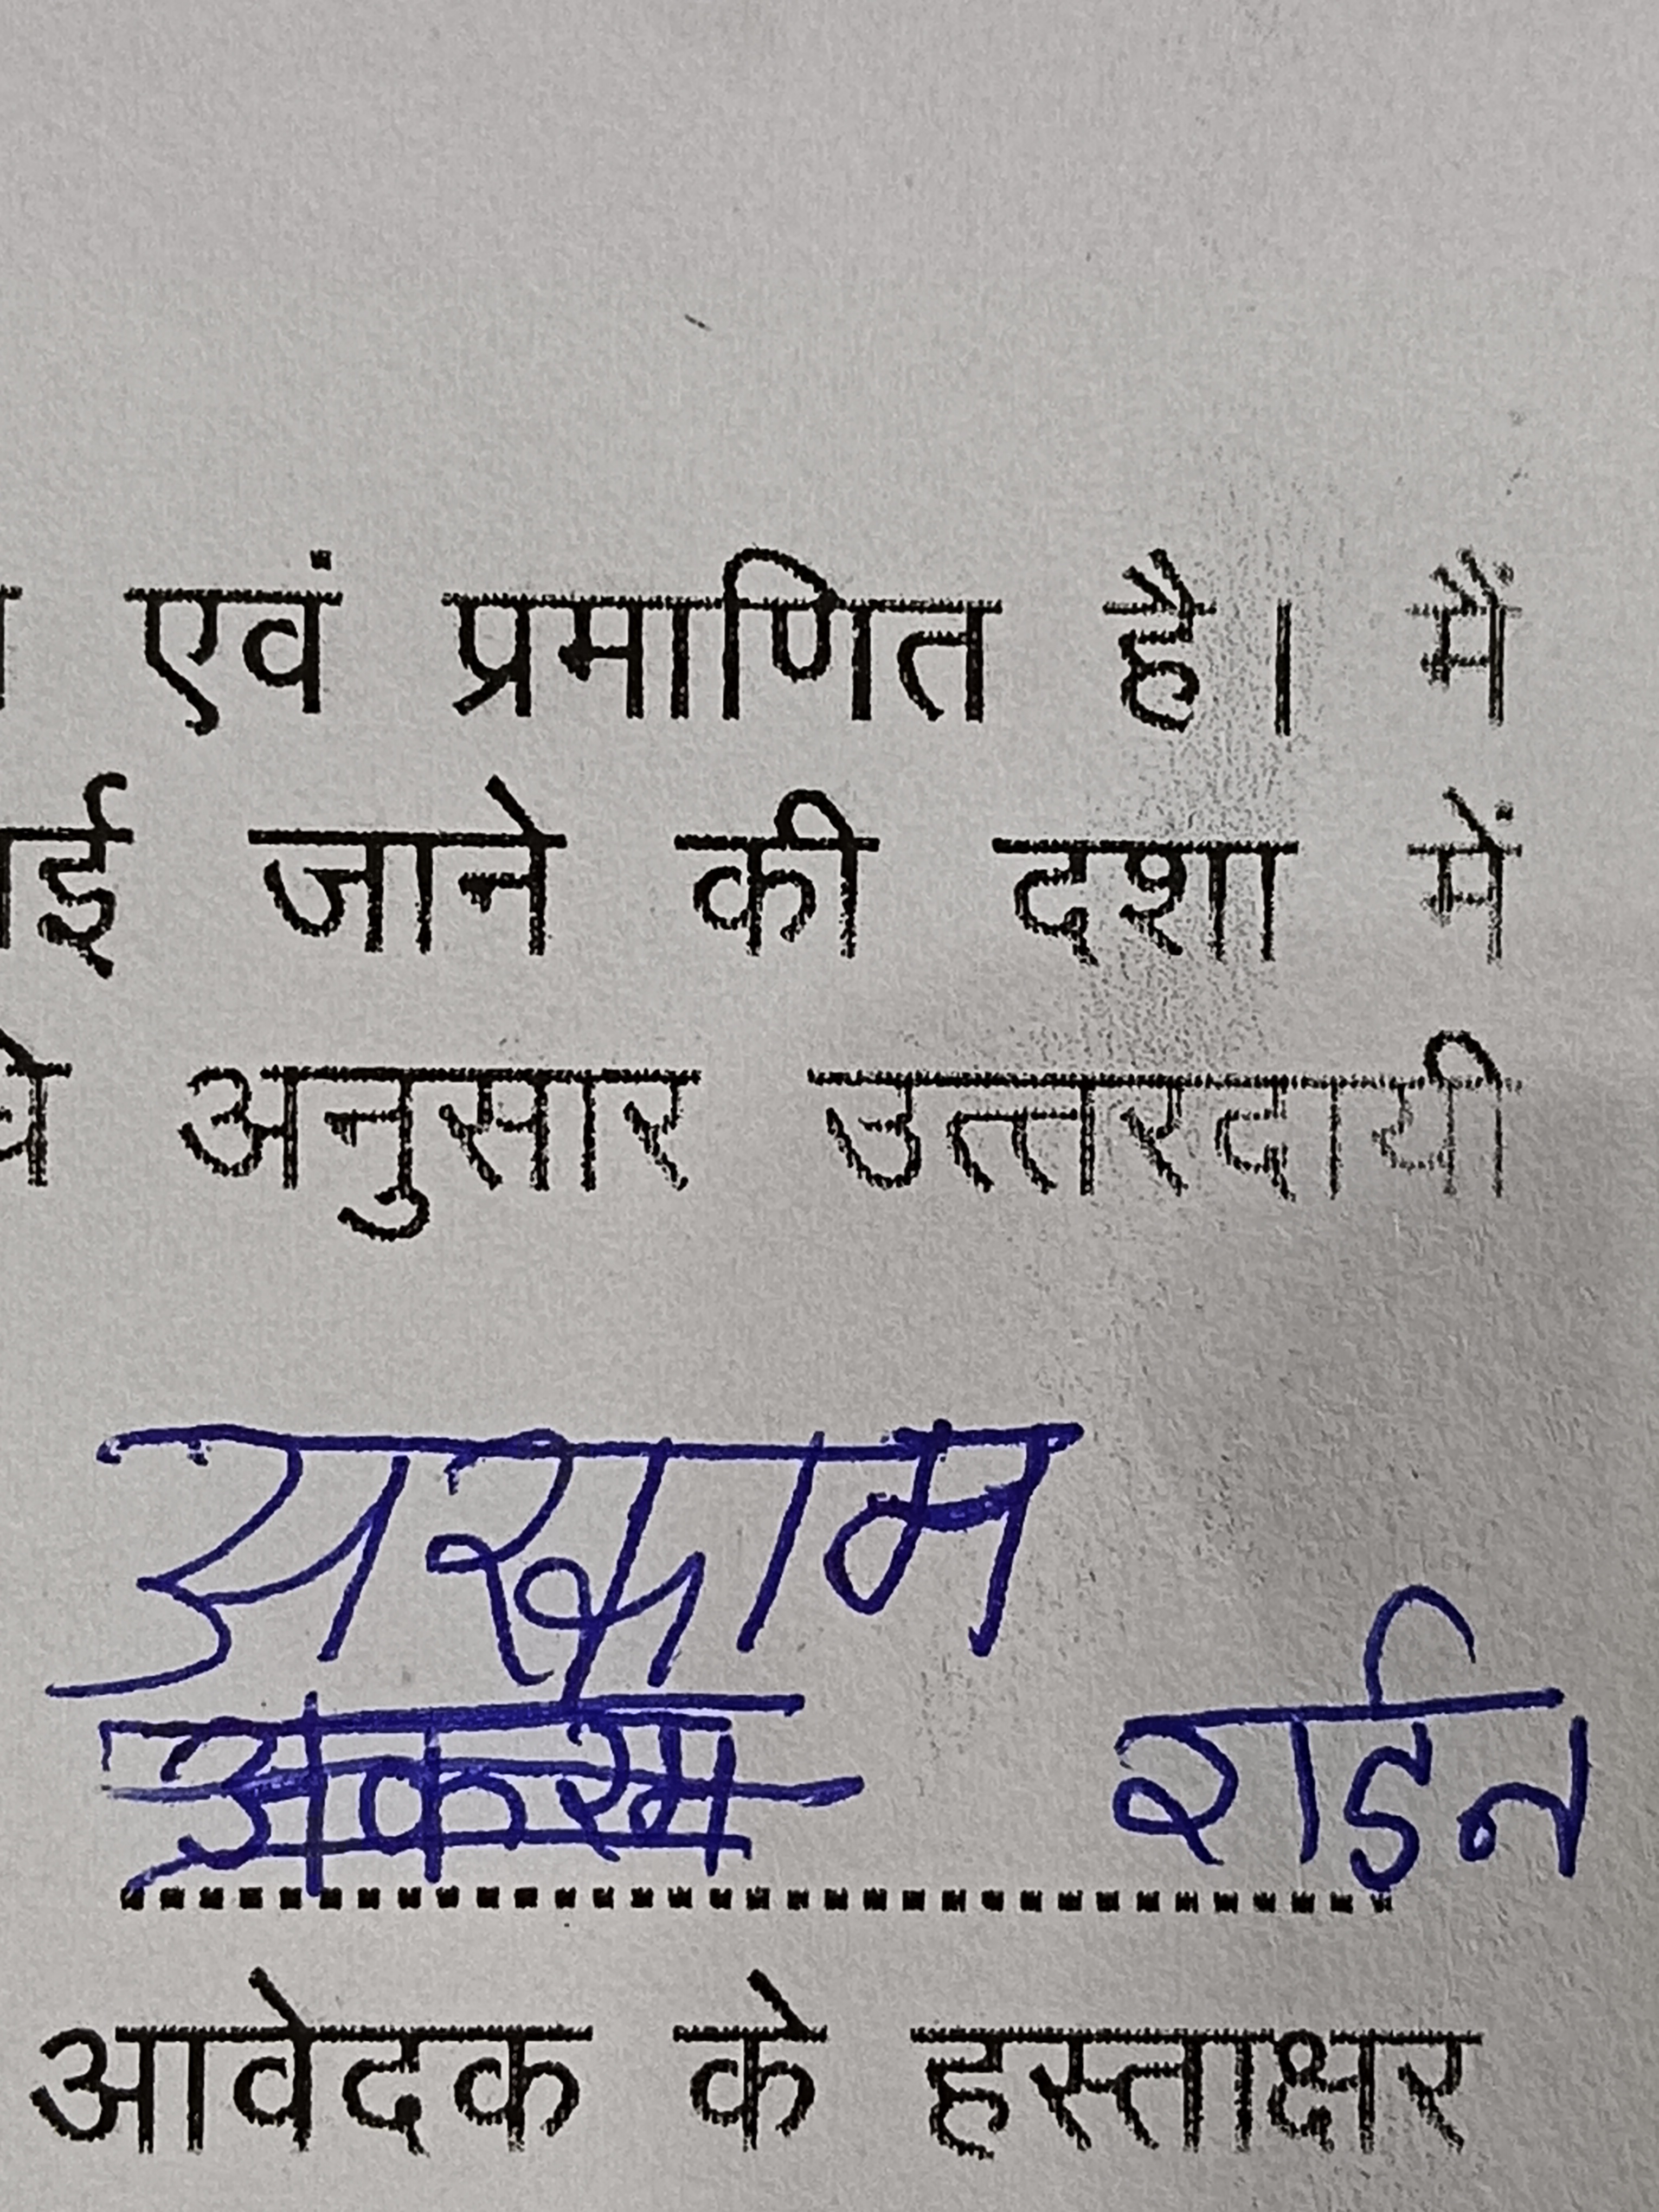 एवं प्रमाणित है। मैं
ई जाने की दशा में
अनुसार उत्तरदायी
अकरम राईन
आवेदक के हस्ताक्षर